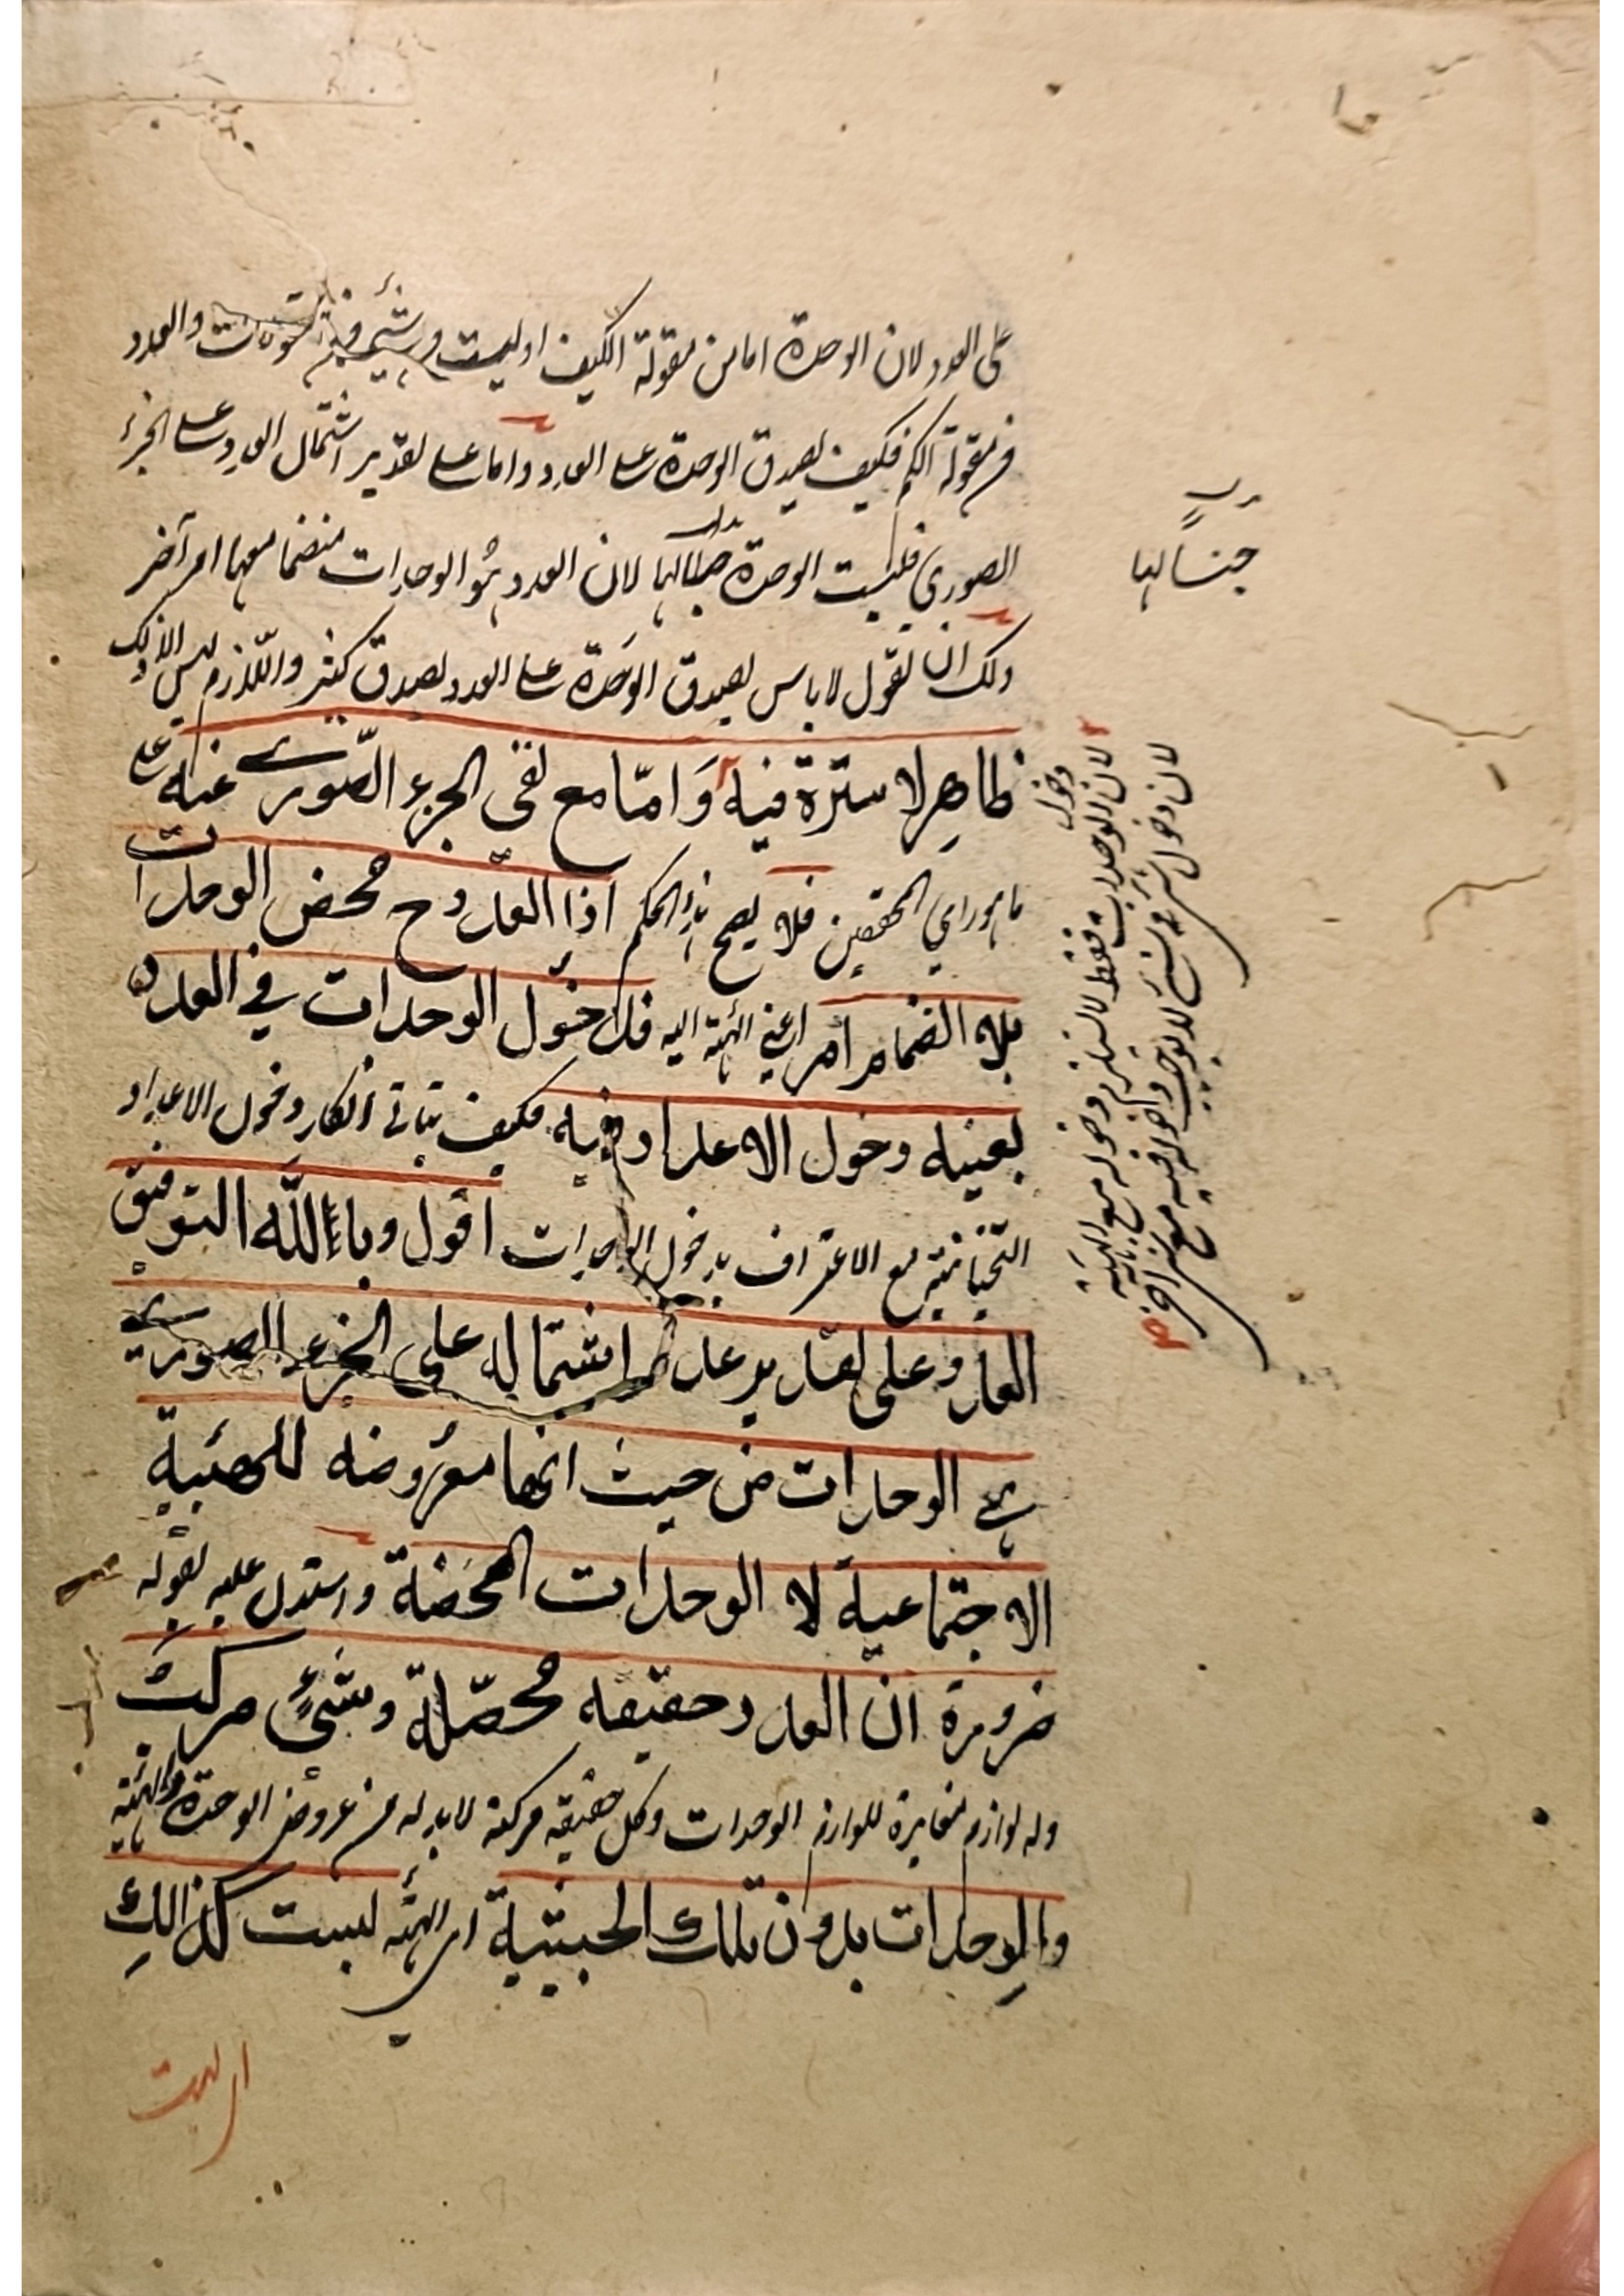 على العدد لان الوحدة اما من مقولة الكيف او ليست من شيء من المقولات والعدد
من مقولة الكم فكيف يصدق الوحدة على العدد واما على تقدير اشتمال العدد على الجزء
الصوري فليست الوحدة جنسا لها لان العدد هو الوحدات منضما معها امر آخر
ولك ان تقول لا باس بصدق الوحدة على العدد لصدق كثير واللازم ليس الا ذلك
ظاهر لا سترة فيه وَامّا مع نفي الجزء الصّوري عنه على
ما هو راي المحققين فلا يصح هذا الحكم اذا العدد ح محض الوحدات
بلا انضمام امر اعني الهيئة اليه فدخول الوحدات في العدد
بعينه دخول الاعداد فيه فكيف يتاتى انكار دخول الاعداد
التحتانية مع الاعتراف بدخول الوحدات اقول وبالله التوفيق
العدد على تقدير عدم اشتماله على الجزء الصوري
هي الوحدات من حيث انها معروضة للهيئية
الاجتماعية لا الوحدات المحضة واستدل عليه بقوله
ضرورة ان العدد حقيقة محصّلة وشيءٌ مركبٌ
وله لوازم مغايرة للوازم الوحدات وكل حقيقة مركبة لا بد له من عروض الوحدة والهيئة
والوحدات بدون تلك الحيثية اي الهيئة ليست كذالك
جنسا لها
لان دخول الوحدات فقط لا يستلزم دخوله مع الهيئة
لان دخول شيء في شيء لا يوجب دخوله فيه مع شيء آخر
اي ليست